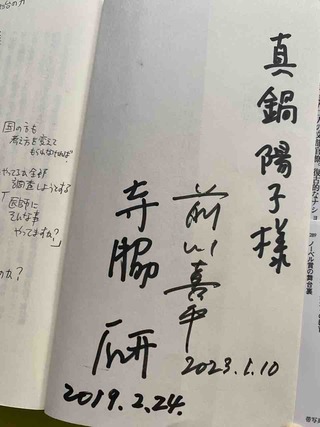 真鍋陽子様
前川喜平
2023.1.10
寺脇研
2019.2.24.
国の方も
考え方を変えて
もらわなければ
やってるか全部
調査しようとする
「医師に
そんな事
やってますか?」
ノーベル賞の舞台裏